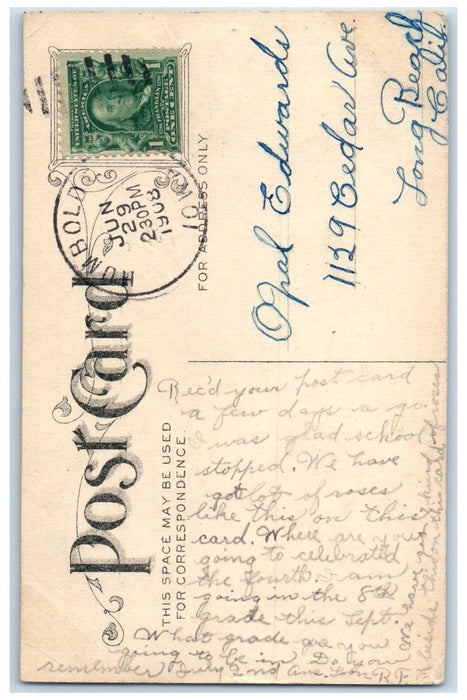 UNITED STATES OF AMERICA
1
ONE CENT
1
HUMBOLDT
JUN
29
230PM
1908
IOWA
Post Card
THIS SPACE MAY BE USED
FOR CORRESPONDENCE
FOR ADDRESS ONLY
Opal Edwards
1129 Cedar Ave.
Long Beach
Calif
Rec'd your post card
a few days a go.
I was glad school
stopped. We have
got lot of roses
like this on this
card. Where are you
going to celebrated
the fourth. I am
going in the 8th
grade this Sept.
What grade are you
going to be in. Do you
remember July 2nd Ans. soon R.F.
We have four kind of roses
beside this on this card